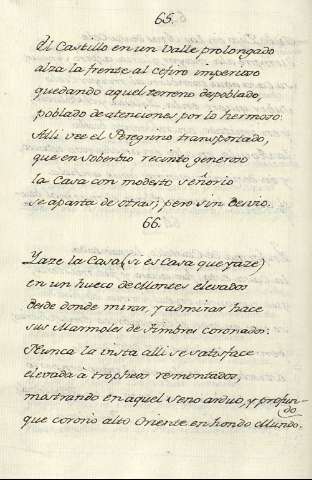 65.
El Castillo en un Valle prolongado
alza la frente al cefiro imperioso
quedando aquel terreno depoblado,
poblado de atenciones por lo hermoso:
Alli vee el Peregrino transportado,
que en soberbio recinto generoso
la Casa con modesto señorio
se aparta de otras; pero sin desvio.
66.
Yaze la Casa (si es Casa que yaze)
en un hueco de Montes elevados
desde donde mirar, y admirar hace
sus Marmoles de Timbres coronados:
Nunca la vista alli se satisface
elevada à tropheos remontados,
mostrando en aquel seno arduo, y profun-
do
que corono alto Oriente en hondo Mundo.